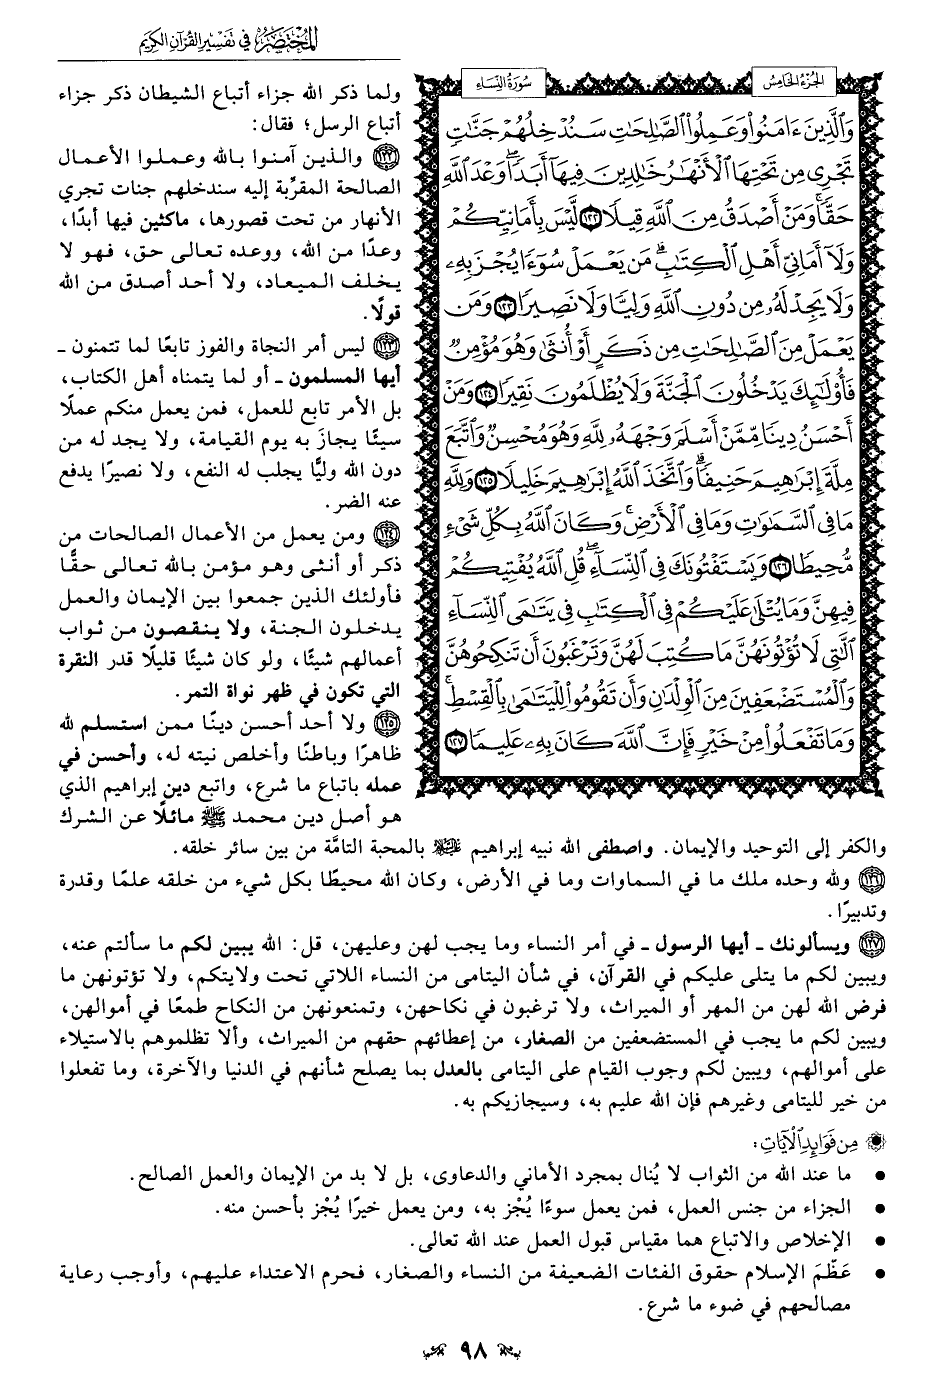 المختصر في تفسير القرآن الكريم
الجزء الخامس
سورة النساء
وَالَّذِينَ ءَامَنُوا وَعَمِلُوا الصَّالِحَاتِ سَنُدْخِلُهُمْ جَنَّاتٍ
تَجْرِي مِن تَحْتِهَا الْأَنْهَارُ خَالِدِينَ فِيهَا أَبَدًا ۖ وَعْدَ اللَّهِ
حَقًّا ۚ وَمَنْ أَصْدَقُ مِنَ اللَّهِ قِيلًا ١٢٢ لَّيْسَ بِأَمَانِيِّكُمْ
وَلَا أَمَانِيِّ أَهْلِ الْكِتَابِ ۗ مَن يَعْمَلْ سُوءًا يُجْزَ بِهِ
وَلَا يَجِدْ لَهُ مِن دُونِ اللَّهِ وَلِيًّا وَلَا نَصِيرًا ١٢٣ وَمَن
يَعْمَلْ مِنَ الصَّالِحَاتِ مِن ذَكَرٍ أَوْ أُنثَىٰ وَهُوَ مُؤْمِنٌ
فَأُولَٰئِكَ يَدْخُلُونَ الْجَنَّةَ وَلَا يُظْلَمُونَ نَقِيرًا ١٢٤ وَمَنْ
أَحْسَنُ دِينًا مِّمَّنْ أَسْلَمَ وَجْهَهُ لِلَّهِ وَهُوَ مُحْسِنٌ وَاتَّبَعَ
مِلَّةَ إِبْرَاهِيمَ حَنِيفًا ۗ وَاتَّخَذَ اللَّهُ إِبْرَاهِيمَ خَلِيلًا ١٢٥ وَلِلَّهِ
مَا فِي السَّمَاوَاتِ وَمَا فِي الْأَرْضِ ۚ وَكَانَ اللَّهُ بِكُلِّ شَيْءٍ
مُّحِيطًا ١٢٦ وَيَسْتَفْتُونَكَ فِي النِّسَاءِ ۖ قُلِ اللَّهُ يُفْتِيكُمْ
فِيهِنَّ وَمَا يُتْلَىٰ عَلَيْكُمْ فِي الْكِتَابِ فِي يَتَامَى النِّسَاءِ
الَّتِي لَا تُؤْتُونَهُنَّ مَا كُتِبَ لَهُنَّ وَتَرْغَبُونَ أَن تَنكِحُوهُنَّ
وَالْمُسْتَضْعَفِينَ مِنَ الْوِلْدَانِ وَأَن تَقُومُوا لِلْيَتَامَىٰ بِالْقِسْطِ ۚ
وَمَا تَفْعَلُوا مِنْ خَيْرٍ فَإِنَّ اللَّهَ كَانَ بِهِ عَلِيمًا ١٢٧
ولما ذكر الله جزاء أتباع الشيطان ذكر جزاء
أتباع الرسل؛ فقال:
١٢٢ والذين آمنوا بالله وعملوا الأعمال
الصالحة المقرِّبة إليه سندخلهم جنات تجري
الأنهار من تحت قصورها، ماكثين فيها أبدًا،
وعدًا من الله، ووعده تعالى حق، فهو لا
يخلف الميعاد، ولا أحد أصدق من الله
قولًا.
١٢٣ ليس أمر النجاة والفوز تابعًا لما تتمنون -
أيها المسلمون - أو لما يتمناه أهل الكتاب،
بل الأمر تابع للعمل، فمن يعمل منكم عملًا
سيئًا يجازَ به يوم القيامة، ولا يجد له من
دون الله وليًّا يجلب له النفع، ولا نصيرًا يدفع
عنه الضر.
١٢٤ ومن يعمل من الأعمال الصالحات من
ذكر أو أنثى وهو مؤمن بالله تعالى حقًّا
فأولئك الذين جمعوا بين الإيمان والعمل
يدخلون الجنة، ولا ينقصون من ثواب
أعمالهم شيئًا، ولو كان شيئًا قليلًا قدر النقرة
التي تكون في ظهر نواة التمر.
١٢٥ ولا أحد أحسن دينًا ممن استسلم لله
ظاهرًا وباطنًا وأخلص نيته له، وأحسن في
عمله باتباع ما شرع، واتبع دين إبراهيم الذي
هو أصل دين محمد ﷺ مائلًا عن الشرك
والكفر إلى التوحيد والإيمان. واصطفى الله نبيه إبراهيم عليه السلام بالمحبة التامَّة من بين سائر خلقه.
١٢٦ ولله وحده ملك ما في السماوات وما في الأرض، وكان الله محيطًا بكل شيء من خلقه علمًا وقدرة
وتدبيرًا.
١٢٧ ويسألونك - أيها الرسول - في أمر النساء وما يجب لهن وعليهن، قل: الله يبين لكم ما سألتم عنه،
ويبين لكم ما يتلى عليكم في القرآن، في شأن اليتامى من النساء اللاتي تحت ولايتكم، ولا تؤتونهن ما
فرض الله لهن من المهر أو الميراث، ولا ترغبون في نكاحهن، وتمنعونهن من النكاح طمعًا في أموالهن،
ويبين لكم ما يجب في المستضعفين من الصغار، من إعطائهم حقهم من الميراث، وألا تظلموهم بالاستيلاء
على أموالهم، ويبين لكم وجوب القيام على اليتامى بالعدل بما يصلح شأنهم في الدنيا والآخرة، وما تفعلوا
من خير لليتامى وغيرهم فإن الله عليم به، وسيجازيكم به.
من فوائد الآيات:
• ما عند الله من الثواب لا يُنال بمجرد الأماني والدعاوى، بل لا بد من الإيمان والعمل الصالح.
• الجزاء من جنس العمل، فمن يعمل سوءًا يُجْز به، ومن يعمل خيرًا يُجْز بأحسن منه.
• الإخلاص والاتباع هما مقياس قبول العمل عند الله تعالى.
• عَظَّمَ الإسلام حقوق الفئات الضعيفة من النساء والصغار، فحرم الاعتداء عليهم، وأوجب رعاية
مصالحهم في ضوء ما شرع.
٩٨